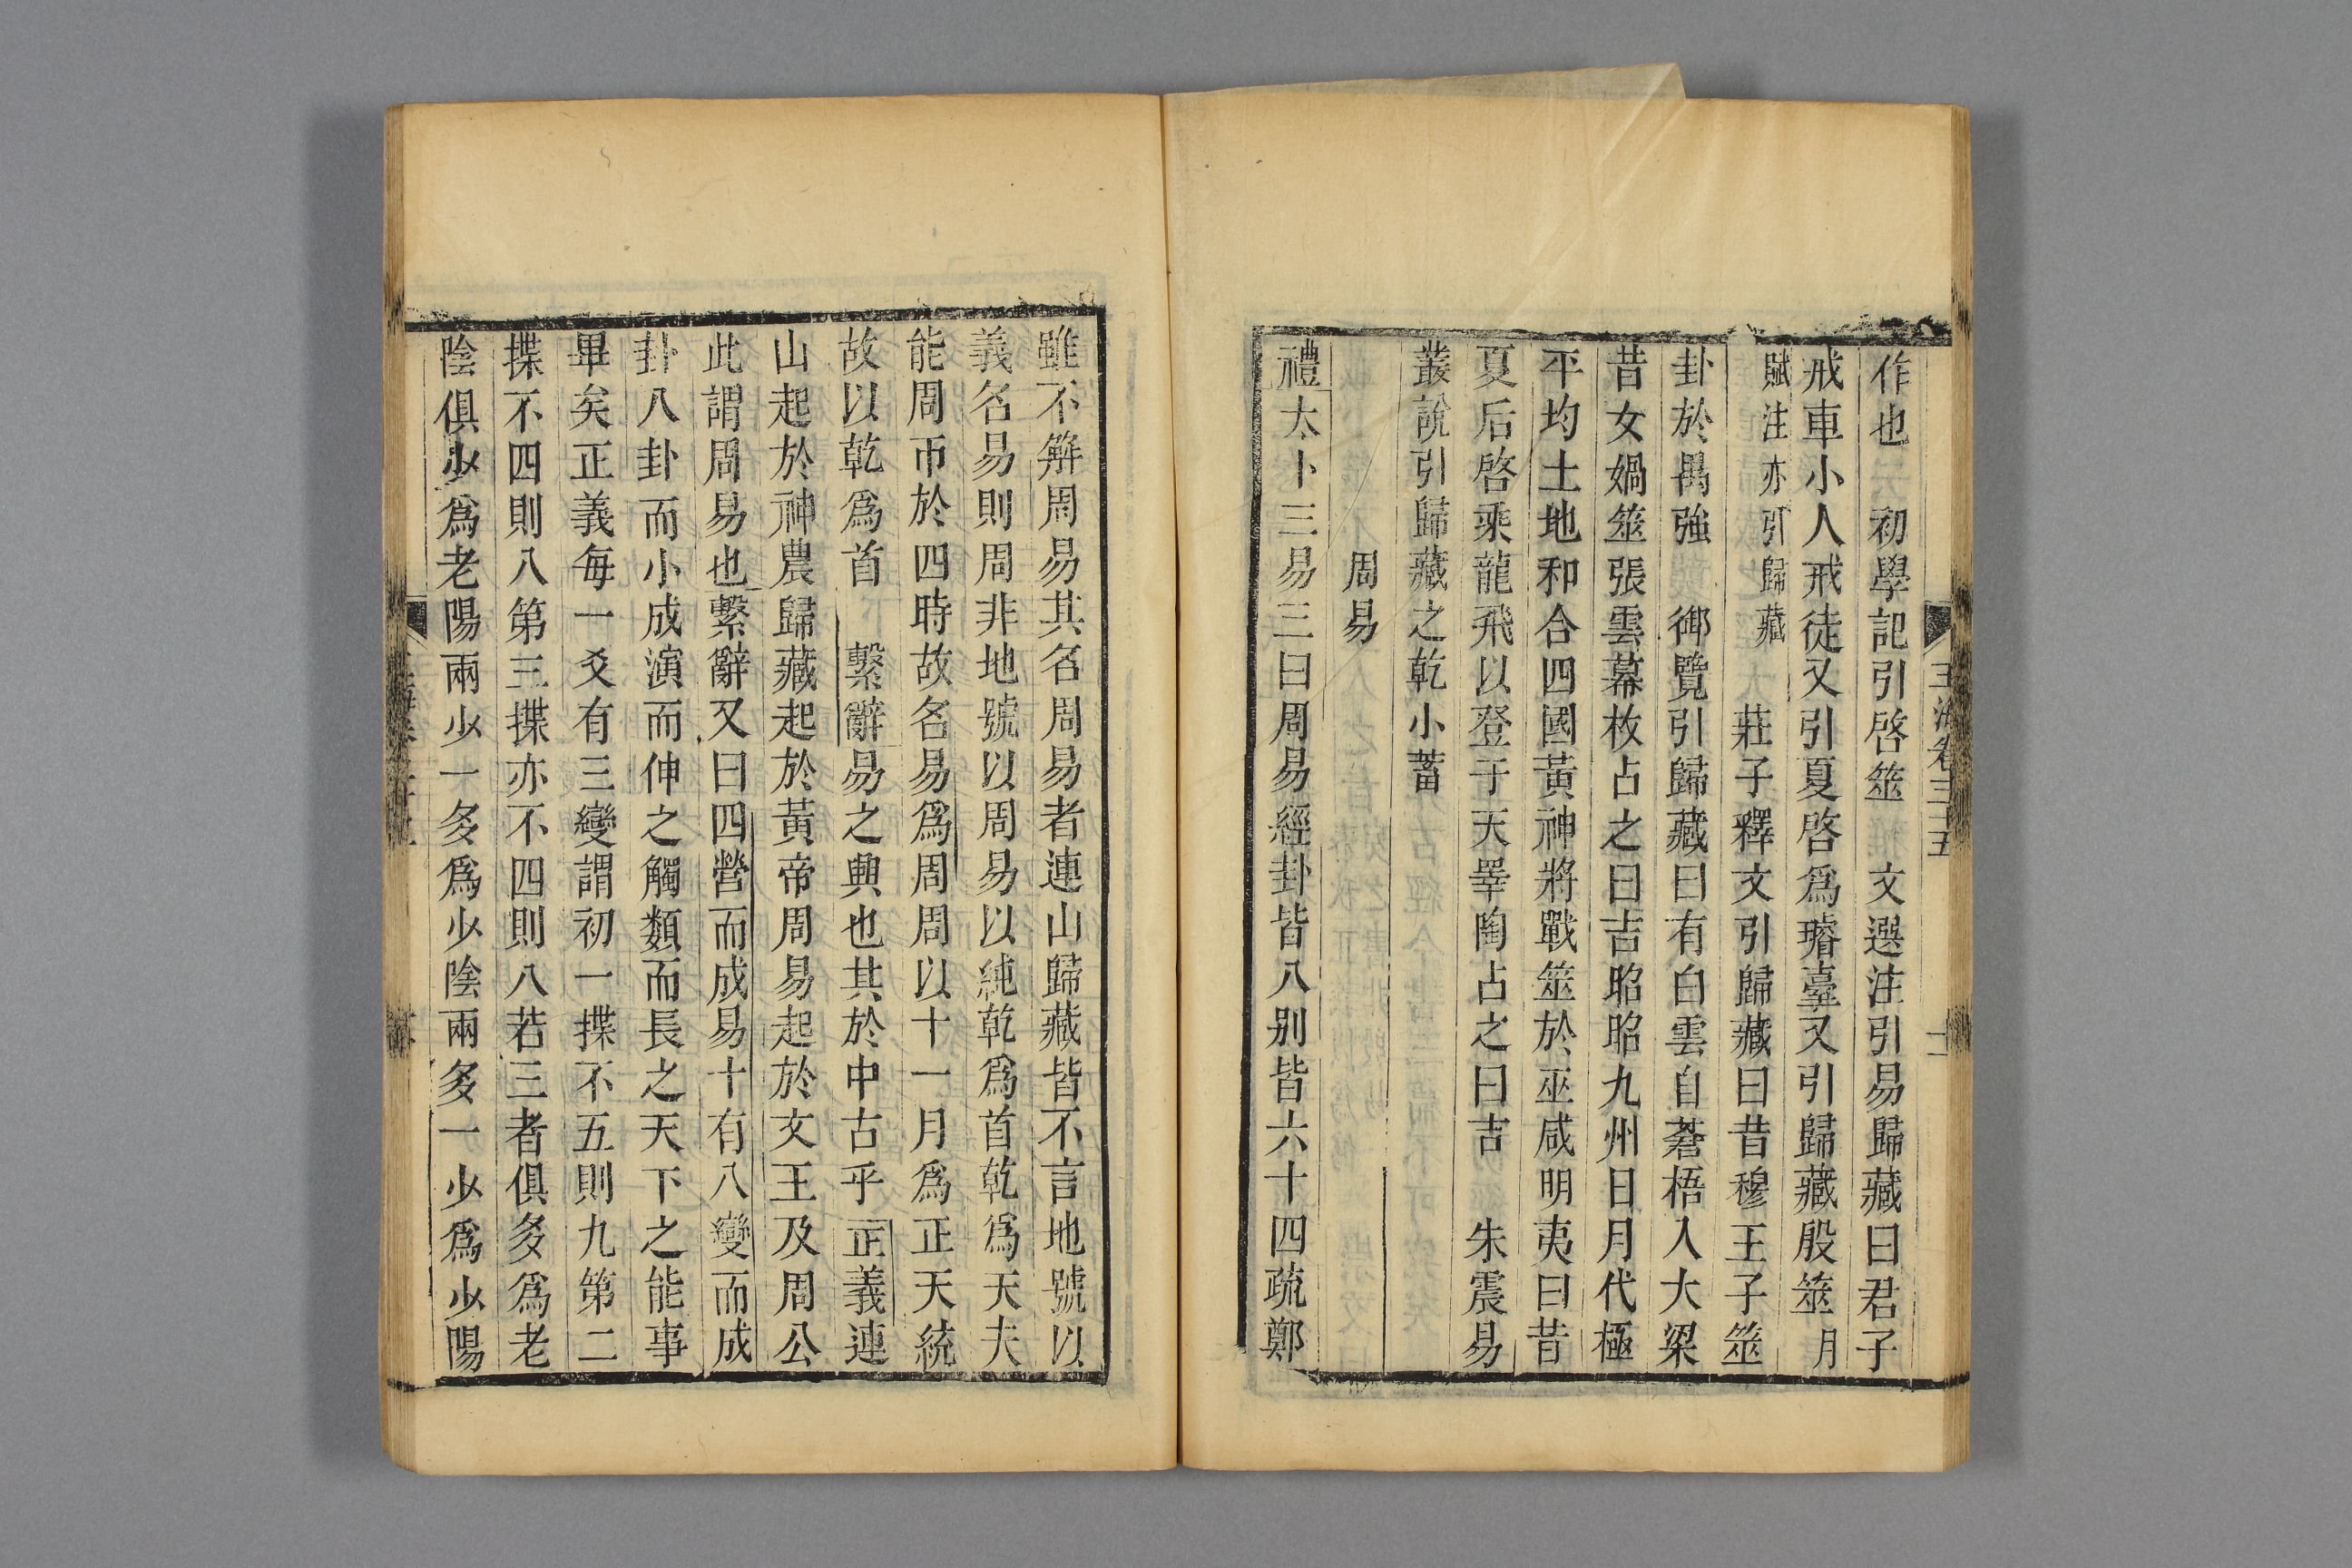 作也　初學記引啓筮　文選注引易歸藏曰君子
戒車小人戒徒又引夏啓爲璿臺又引歸藏殷筮月
賦注亦引歸藏　莊子釋文引歸藏曰昔穆王子筮
卦於禺強　御覽引歸藏曰有白雲自蒼梧入大梁
昔女媧筮張雲幕枚占之曰吉昭昭九州日月代極
平均土地和合四國黃神將戰筮於巫咸明夷曰昔
夏后啓乘龍飛以登于天睾陶占之曰吉　朱震易
叢說引歸藏之乾小蓄
周易
禮太卜三易三曰周易經卦皆八别皆六十四疏鄭
玉海卷三十五
十一
雖不觧周易其名周易者連山歸藏皆不言地號以
義名易則周非地號以周易以純乾爲首乾爲天天
能周帀於四時故名易爲周周以十一月爲正天統
故以乾爲首　繫辭易之興也其於中古乎正義連
山起於神農歸藏起於黃帝周易起於文王及周公
此謂周易也繫辭又曰四營而成易十有八變而成
卦八卦而小成演而伸之觸類而長之天下之能事
畢矣正義每一爻有三變謂初一揲不五則九第二
揲不四則八第三揲亦不四則八若三者俱多爲老
陰俱少爲老陽兩少一多爲少陰兩多一少爲少陽